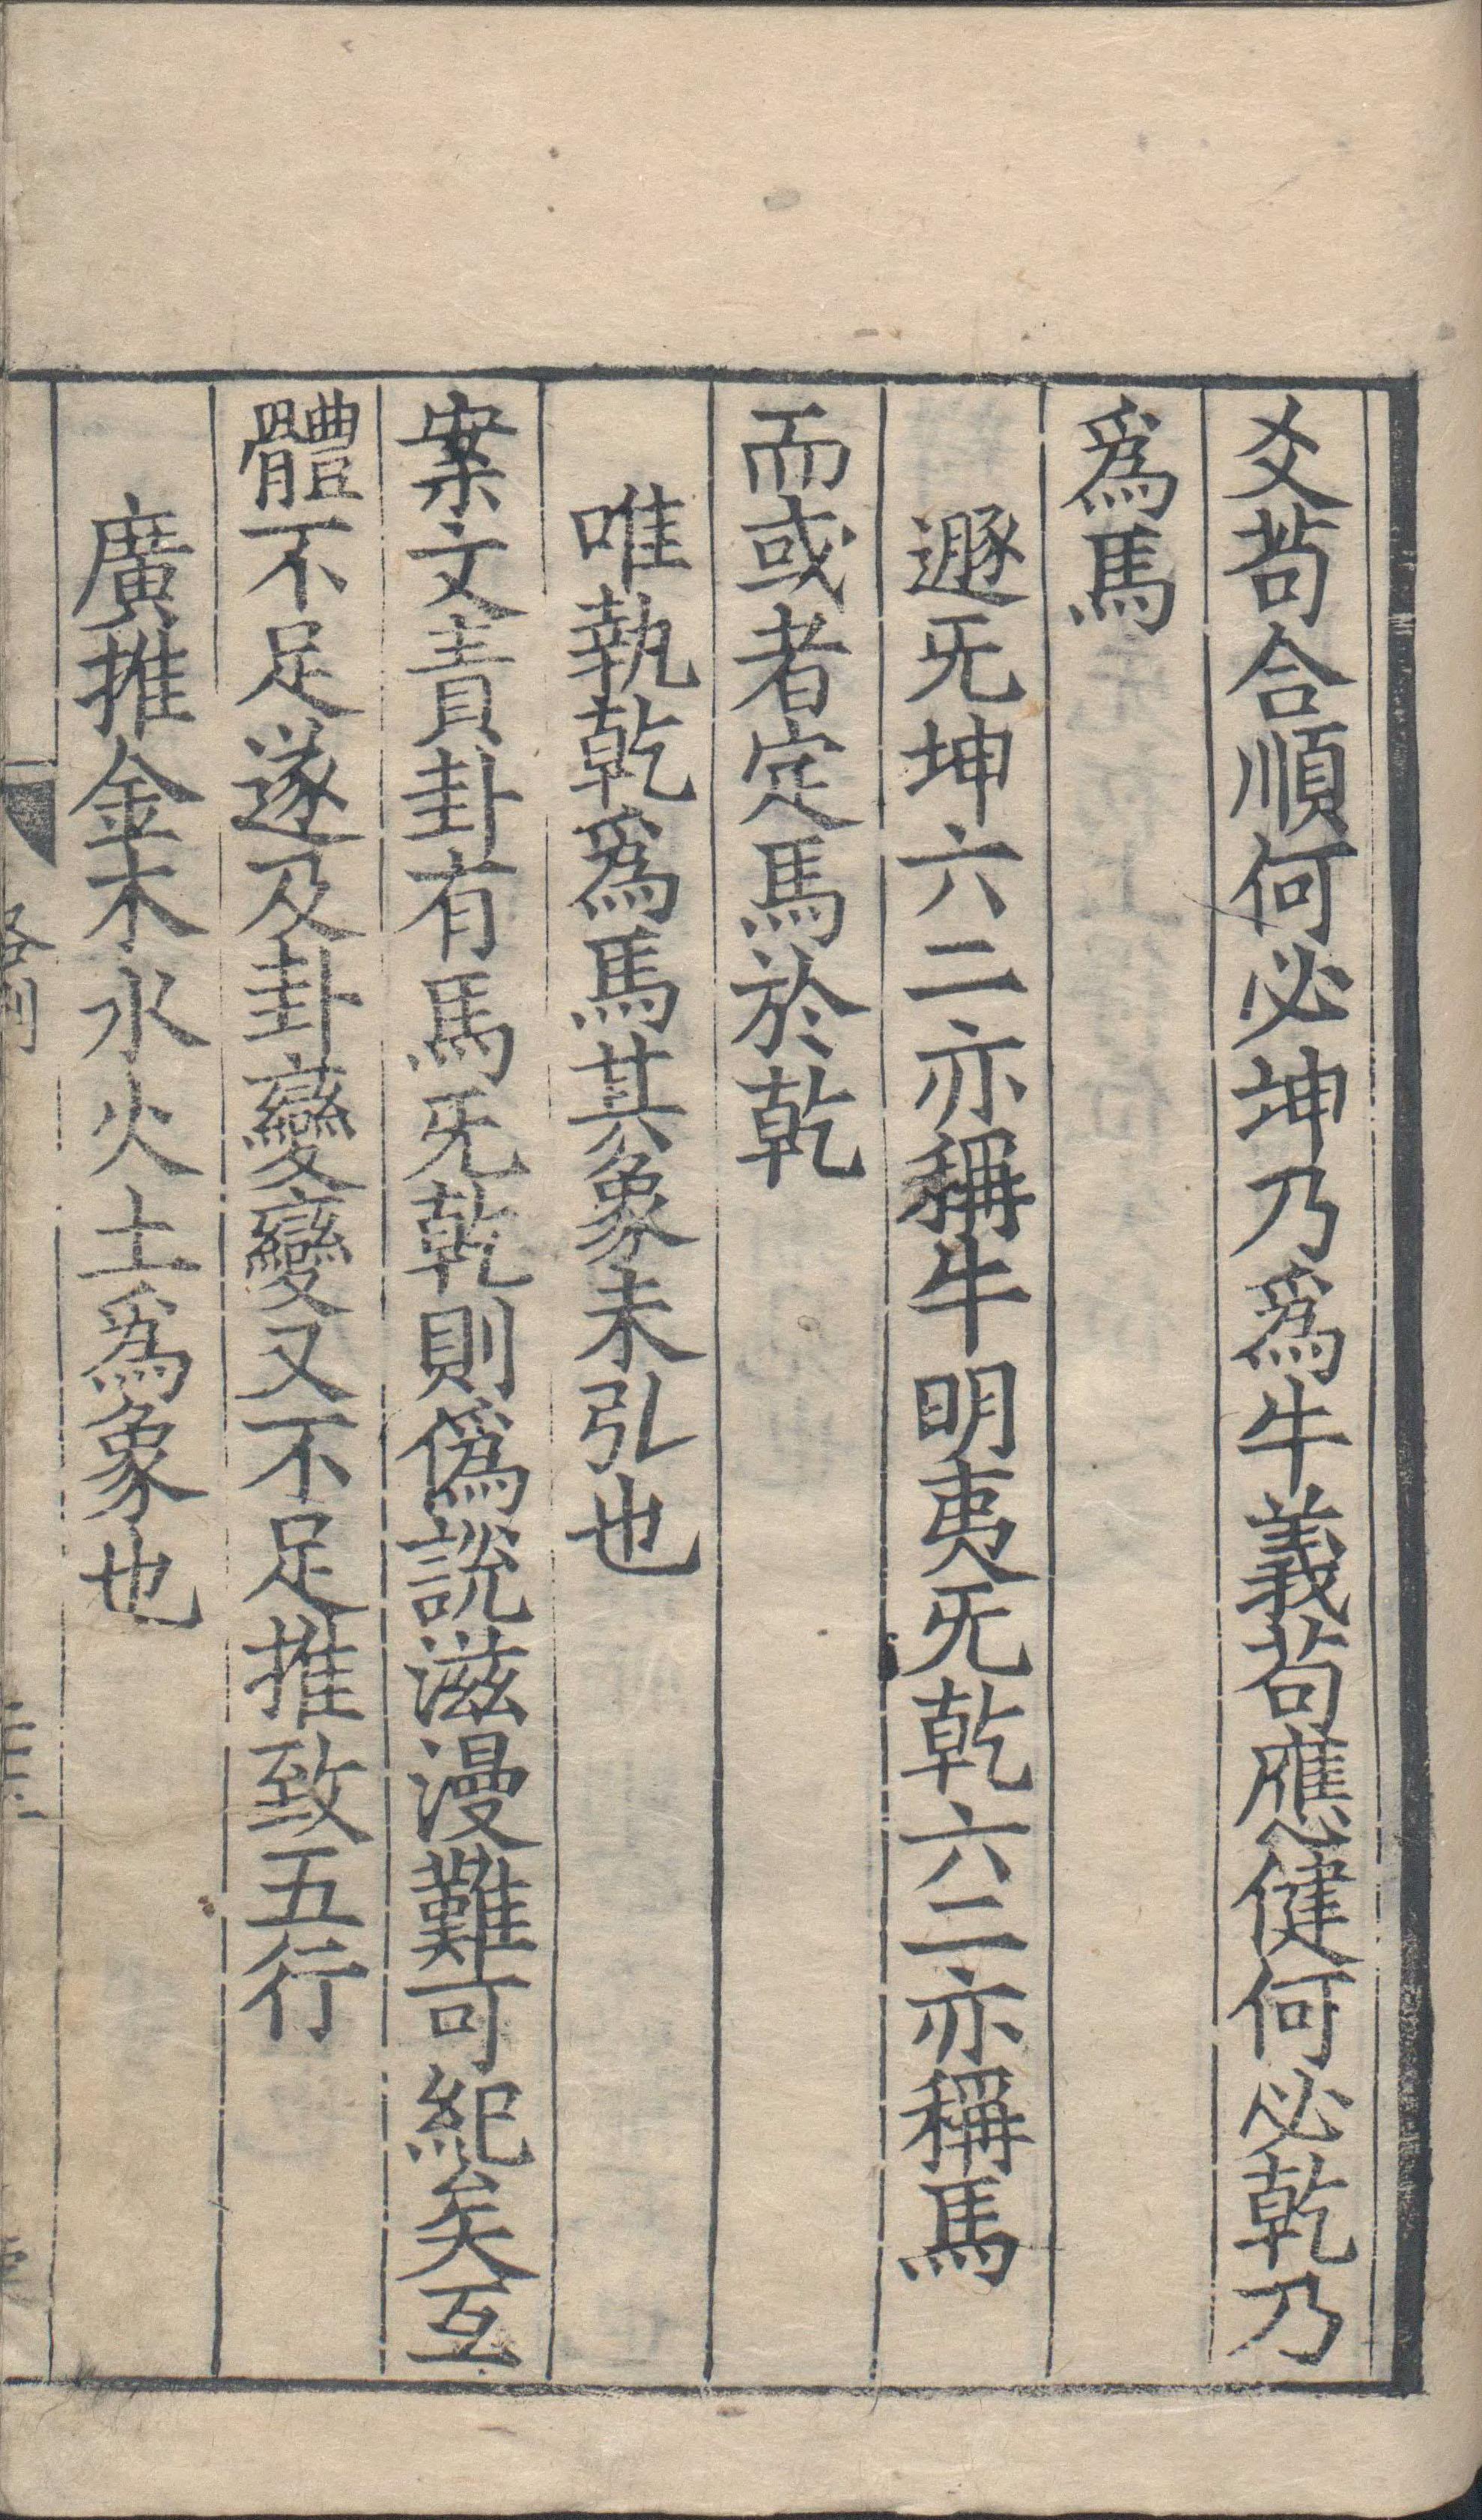 爻苟合順何必坤乃爲牛義苟應健何必乾乃
爲馬
遯旡坤六二亦稱牛明夷旡乾六二亦稱馬
而或者定馬於乾
唯執乾爲馬其象未弘也
案文責卦有馬旡乾則僞說滋漫難可紀矣互
體不足遂及卦變變又不足推致五行
廣推金木水火土爲象也